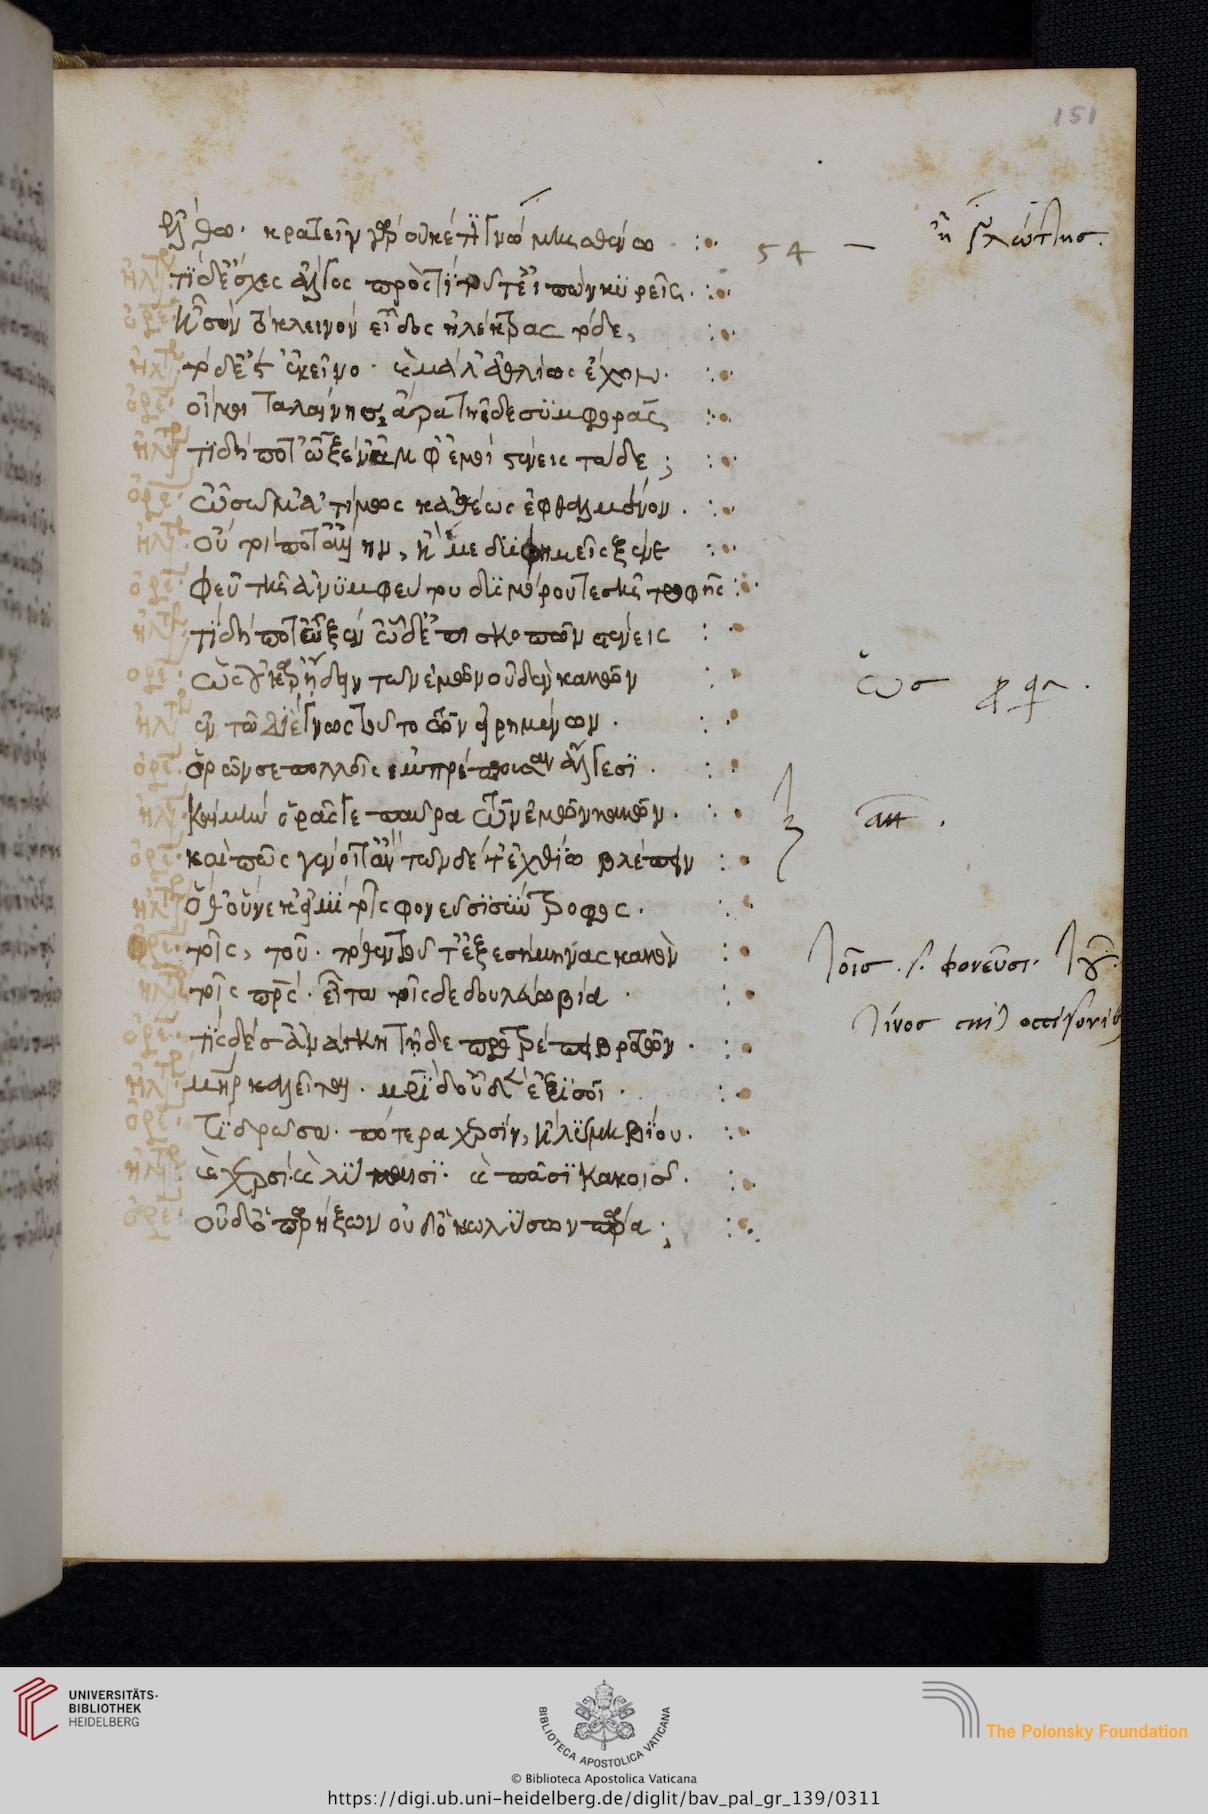 151
ἔλθω. κρατεῖν γὰρ οὐκέτι γνώμης σθένω
54 — ἢ γλώττης.
ἠλ τί δ' ἔσχες ἄλγος πρὸς τί τοῦτ' εἰπὼν κυρεῖς.
ὀρε ἦ σὸν τὸ κλεινὸν εἶδος ἠλέκτρας τόδε,
ἠλ τόδ' ἔστ' ἐκεῖνο. καὶ μάλ' ἀθλίως ἔχον.
ὀρε οἴμοι ταλαίνης ἄρα τῆσδε συμφορᾶς
ἠλ τί δή ποτ' ὦ ξέν' ἀμφ' ἐμοὶ στένεις τάδε;
ὀρε ὦ σῶμ' ἀτίμως κἀθέως ἐφθαρμένον.
ἠλ οὔ τοι ποτ' ἄλλην, ἢ 'μὲ δυσφημεῖς ξένε
ὀρε φεῦ τῆς ἀνύμφου δυσμόρου τε σῆς τροφῆς
ἠλ τί δή ποτ' ὦ ξέν' ὧδ' ἐπισκοπῶν στένεις
ὀρε ὡς οὐκ ἄρ' ᾔδειν τῶν ἐμῶν οὐδὲν κακῶν
ὡς
ἠλ ἐν τῷ διέγνως τοῦτο τῶν εἰρημένων.
ὀρε ὁρῶν σε πολλοῖς ἐμπρέπουσαν ἄλγεσι.
ἠλ καὶ μὴν ὁρᾷς γε παῦρα τῶν ἐμῶν κακῶν.
ὀρε καὶ πῶς γένοιτ' ἂν τῶνδέ τ' ἐχθίω βλέπειν
ἠλ ὁθούνεκ' εἰμὶ τοῖς φονεῦσι σύντροφος.
ὀρε τοῖς, τοῦ. πόθεν τοῦτ' ἐξεσήμηνας κακὸν
τοῖς. φονεῦσι.
ἠλ τοῖς πατρός. εἶτα τοῖς δε δουλεύω βίᾳ.
τίνος
ὀρε τίς δέ σ' ἀνάγκη τῇδε προτρέπει βροτῶν.
ἠλ μήτηρ καλεῖται. μητρὶ δ' οὐδὲν ἐξισοῖ.
ὀρε τί δρῶσα. πότερα χερσίν, ἢ λύμῃ βίου.
ἠλ καὶ χερσὶ καὶ λύμαισι. καὶ πᾶσι κακοῖς.
ὀρε οὐδ' οὑπαρήξων οὐδ' ὁ κωλύσων πάρα;
UNIVERSITÄTS-
BIBLIOTHEK
HEIDELBERG
BIBLIOTECA APOSTOLICA VATICANA
The Polonsky Foundation
© Biblioteca Apostolica Vaticana
https://digi.ub.uni-heidelberg.de/diglit/bav_pal_gr_139/0311